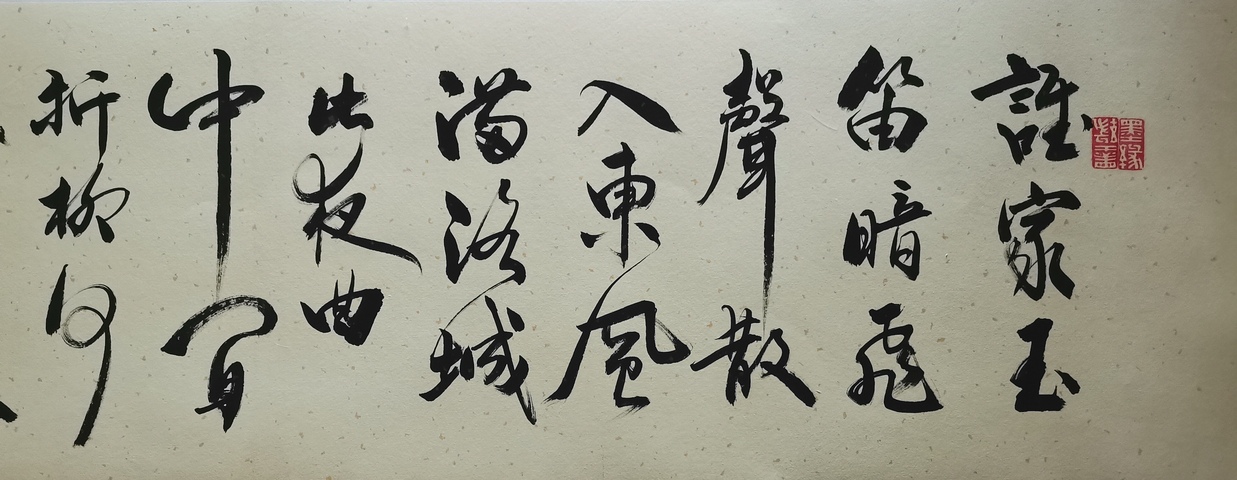 墨緣
誰家玉
笛暗飛
聲散
入東風
滿洛城
此夜曲
中聞
折柳何